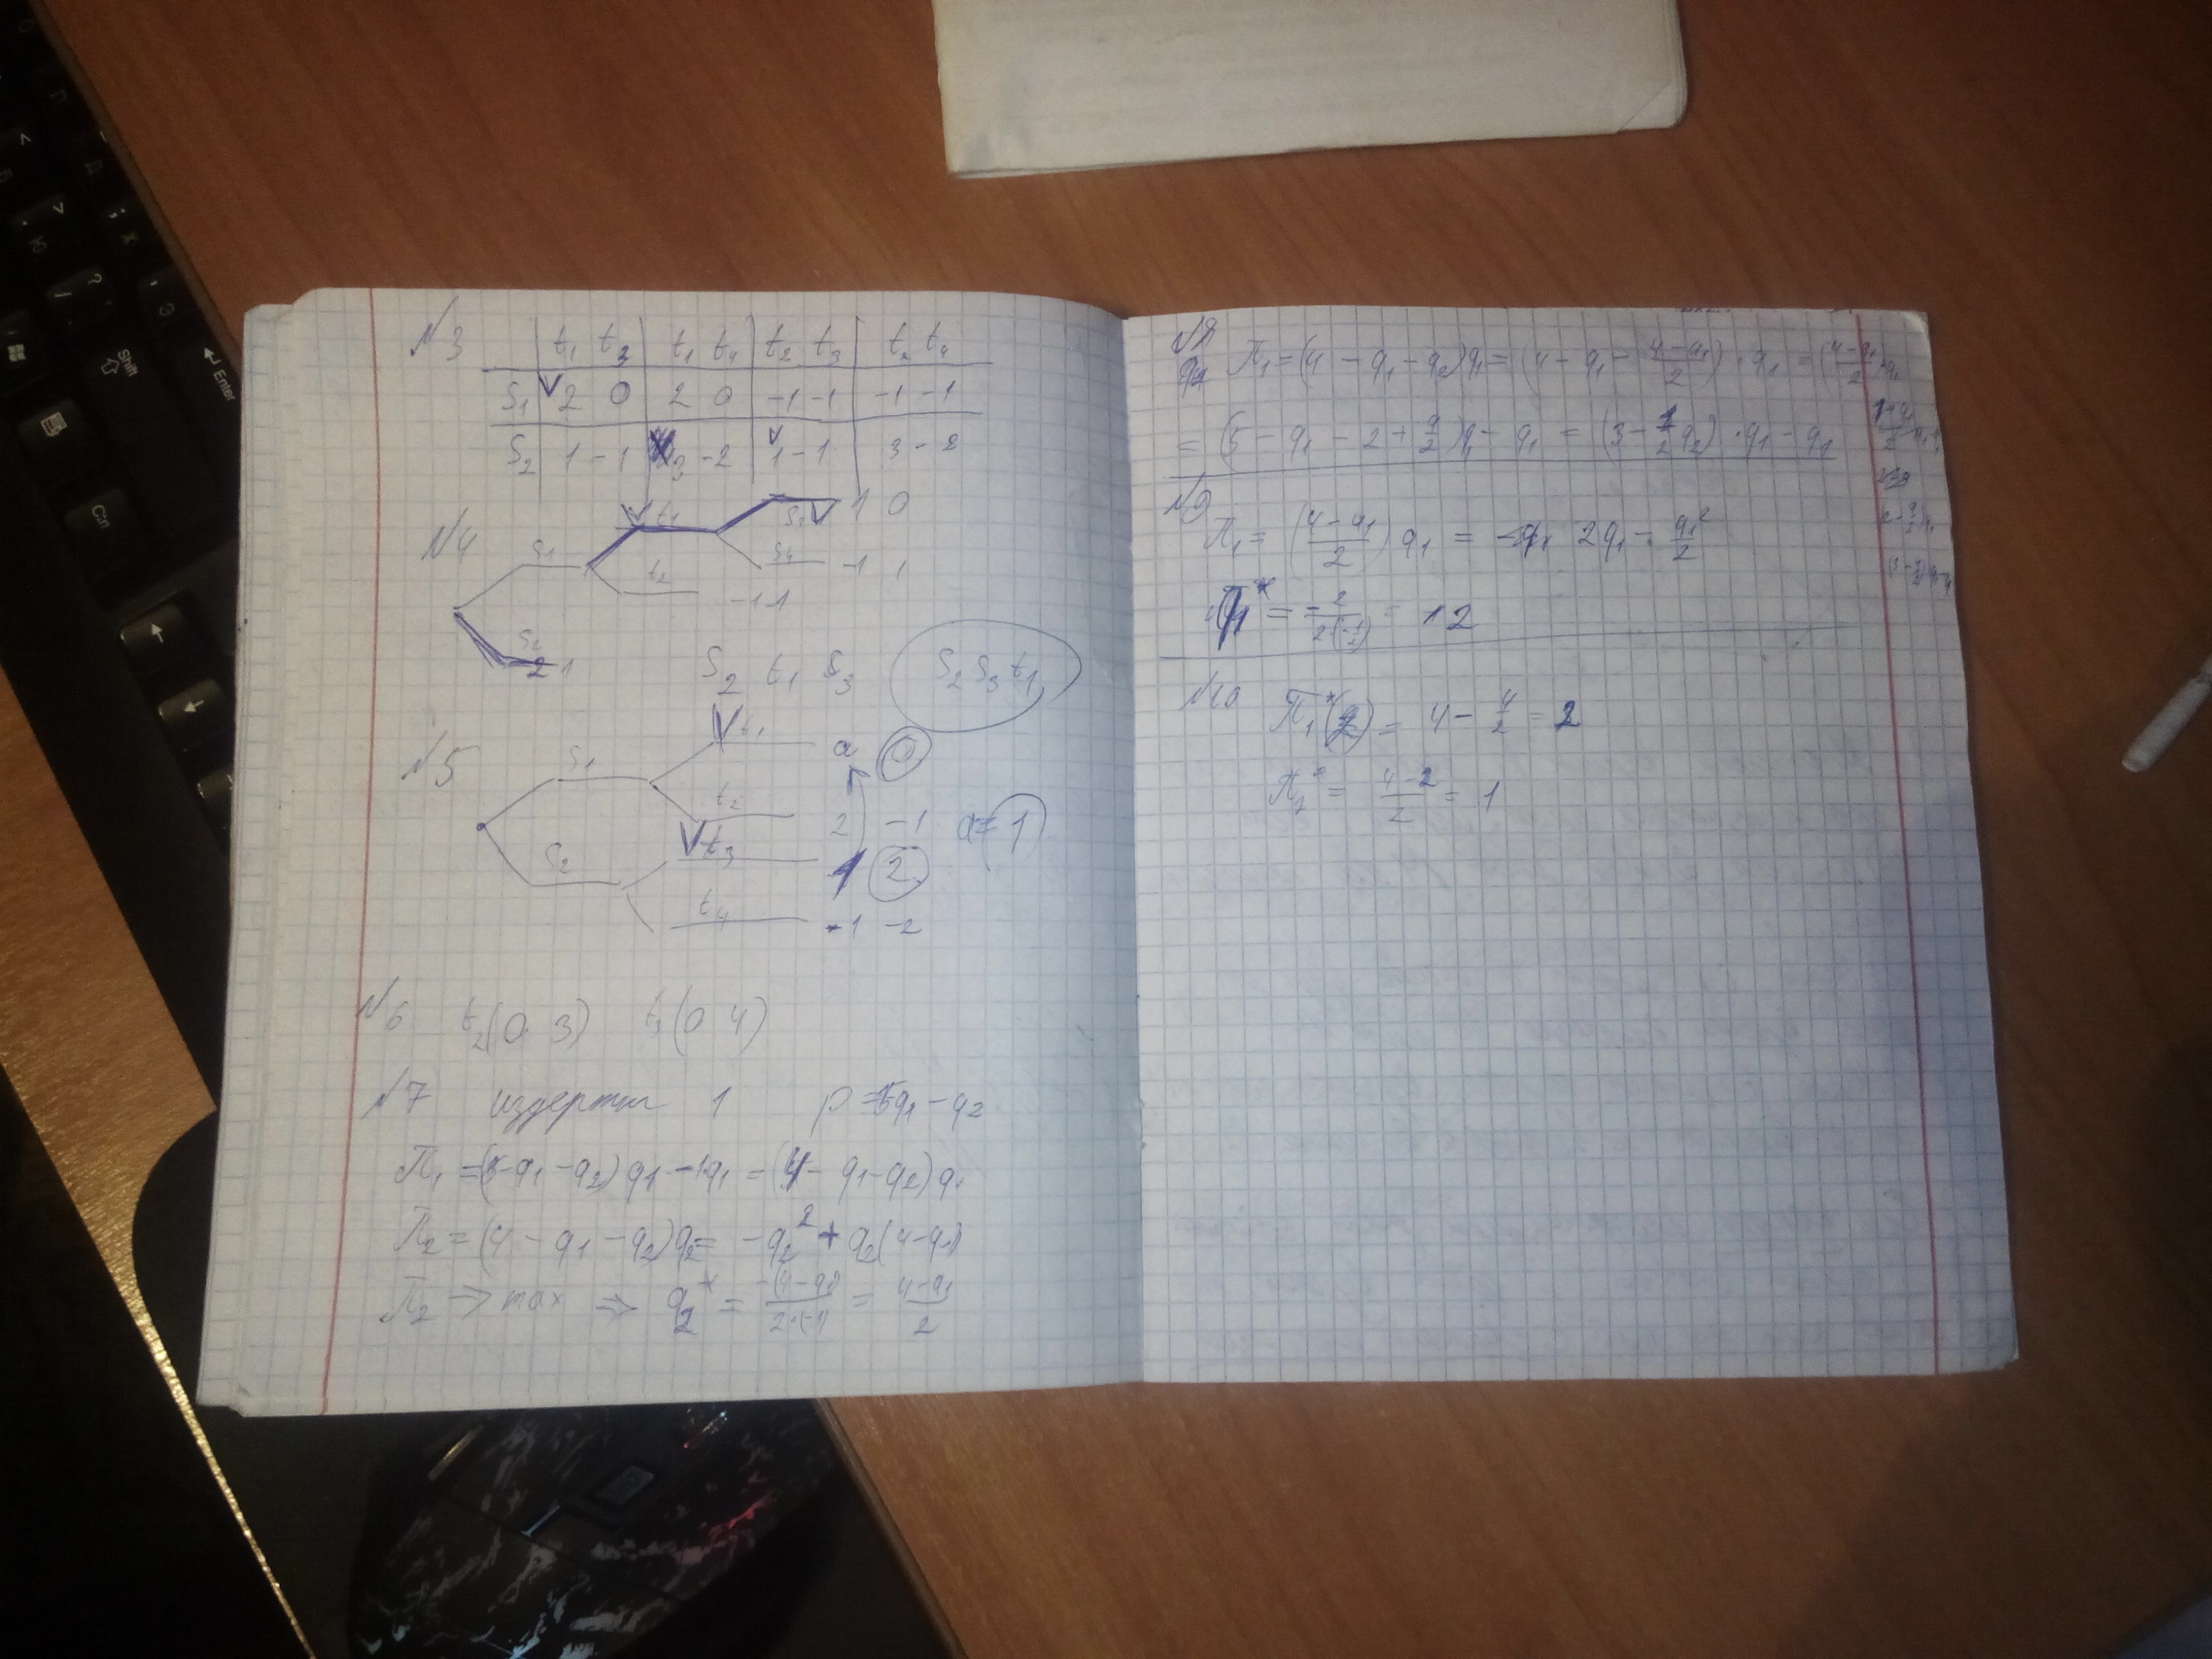 №3
t₁ t₃ | t₁ t₄ | t₂ t₃ | t₂ t₄
S₁ | V 2 0 | 2 0 | -1 -1 | -1 -1
S₂ | 1 -1 | 3 -2 | V 1 -1 | 3 -2
№4
S₁
V t₁
S₃ V 1 0
S₄ -1 1
t₂ -1 1
S₂
2 1
S₂ t₁ S₃
S₂ S₃ t₁
№5
S₁
V t₁ a 0
t₂ 2 -1
a = 1
S₂
V t₃ 1 2
t₄ -1 -2
№6 t₂(0 3) t₃(0 4)
№7 издержки 1 p = 5-q₁-q₂
П₁ = (5-q₁-q₂)q₁-1q₁ = (4-q₁-q₂)q₁
П₂ = (4-q₁-q₂)q₂ = -q₂² + q₂(4-q₁)
П₂ → max ⇒ q₂* = -(4-q₁)/2·(-1) = 4-q₁/2
№8
П₁ = (4-q₁-q₂)q₁ = (4-q₁-(4-q₁)/2)·q₁ = ((4-q₁)/2)·q₁
= (5-q₁-2+q/2)q₁-q₁ = (3-1/2q₂)·q₁-q₁
№9
П₁ = ((4-q₁)/2)q₁ = 2q₁ - q₁²/2
q₁* = -2/2·(-1/2) = 2
№10 П₁*(2) = 4 - 4/2 = 2
П₂* = 4-2/2 = 1
Shift
Enter
Ctrl